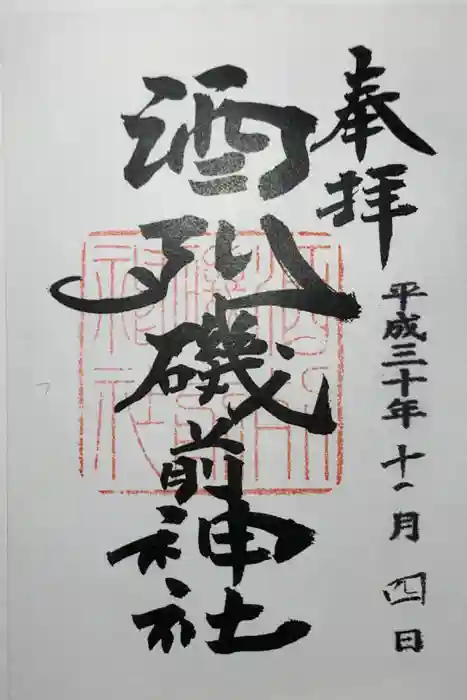 奉拝
平成三十年十一月四日
酒列磯前神社